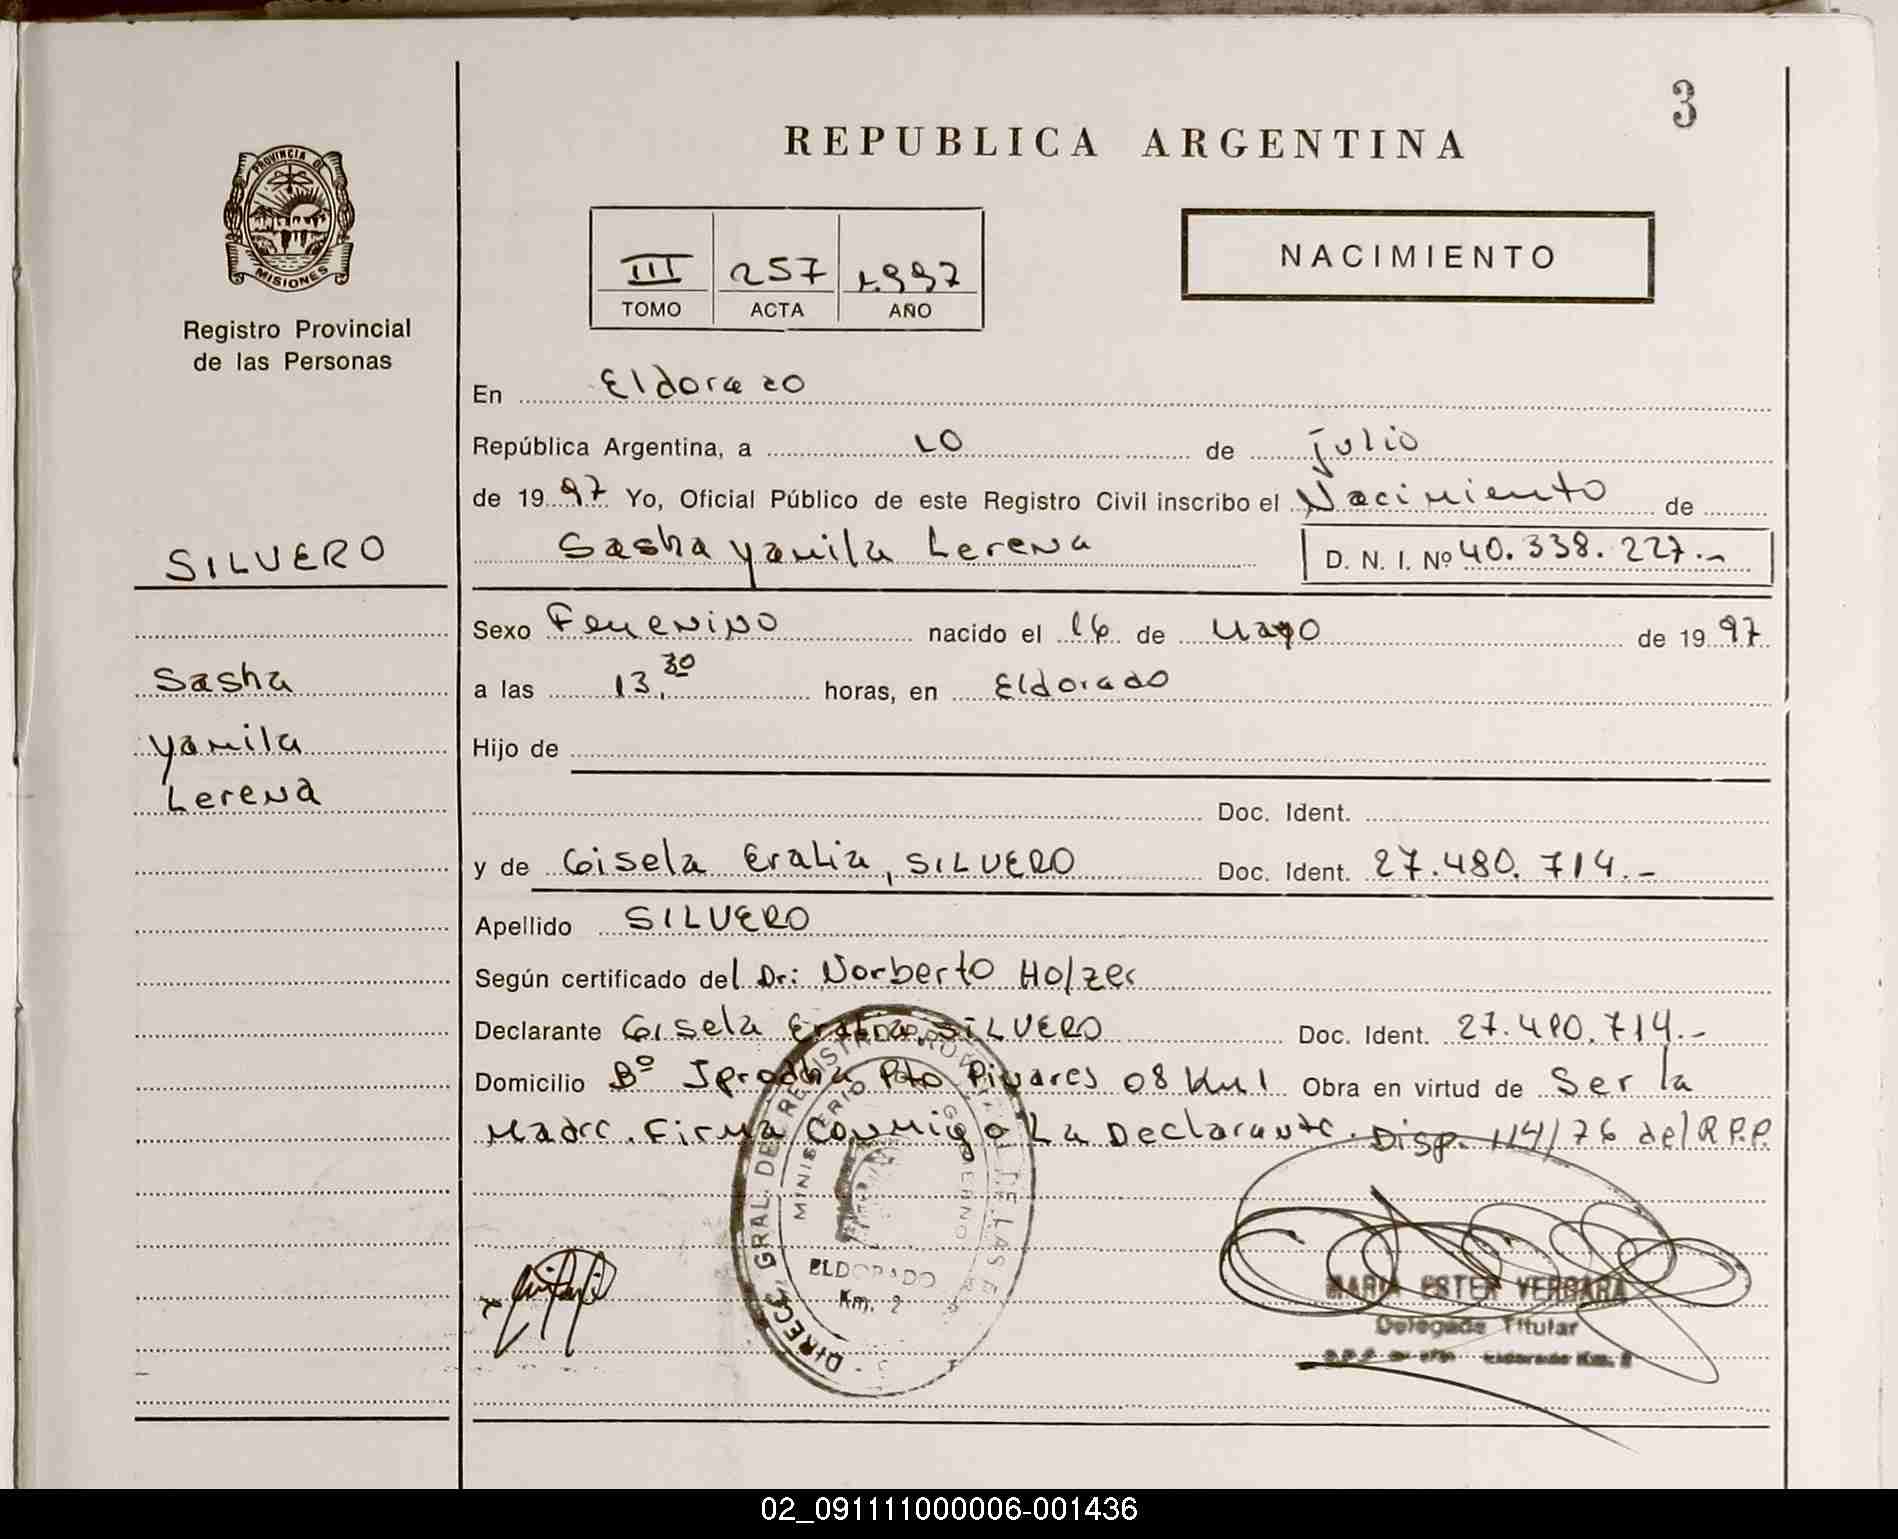 3
REPUBLICA ARGENTINA
PROVINCIA DE
MISIONES
Registro Provincial
de las Personas
III 257 1997
TOMO ACTA AÑO
NACIMIENTO
En Eldorado
República Argentina, a 10 de julio
de 1997 Yo, Oficial Público de este Registro Civil inscribo el Nacimiento de
SILVERO
Sasha Yamila Lerena D. N. I. Nº 40.338.227.-
Sexo Femenino nacido el 16 de Mayo de 1997
Sasha
a las 13,30 horas, en Eldorado
Yamila
Hijo de
Lerena
Doc. Ident.
y de Gisela Eralia, SILVERO Doc. Ident. 27.480.714.-
Apellido SILVERO
Según certificado del Dr: Norberto Holzer
Declarante Gisela Eralia SILVERO Doc. Ident. 27.480.714.-
Domicilio Bº Iprodha Pto Pinares 08 Km 1 Obra en virtud de Ser la
Madre. Firma Conmigo La Declarante. Disp. 114/76 del R.P.P.
MINISTERIO GOBIERNO
ELDORADO
Km. 2
MARIA ESTER VERGARA
Delegada Titular
Eldorado Km. 2
02_091111000006-001436